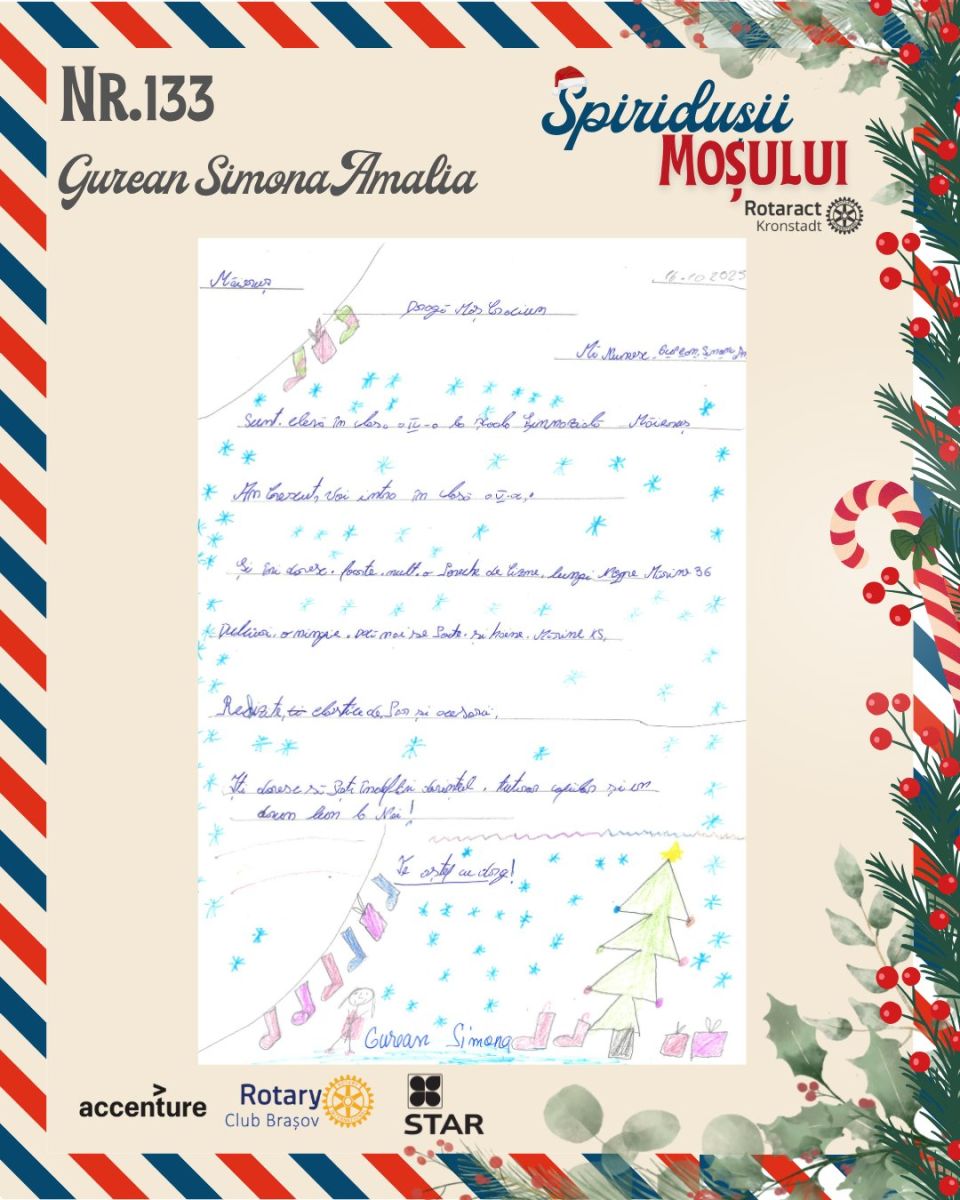 Nr.133
Gurean Simona Amalia
Spiridusii
Moșului
Rotaract
Kronstadt
Măieruș
16-10 2025
Dragă Moș Crăciun
Mă Numesc, Gurean, Simona Am
Sunt. elevă în clas. a IV-a la Școala Gimnazială Măieruș
Am Crescut, Voi intra în clasa a V-a,.
Și îmi doresc. foarte. mult. o Pereche de Cizme. lungi Negre Marime 36
Dulciuri. o mingie. Dacă mai se Poate. și haine. Marime XS,
Rechizite, elastice de Păr și acesorii,
Îți doresc să Poți îndeplini dorințele. tuturor copiilor și un
drum bun la Noi!
Te aștept cu drag!
Gurean Simona
accenture
Rotary
Club Brașov
STAR